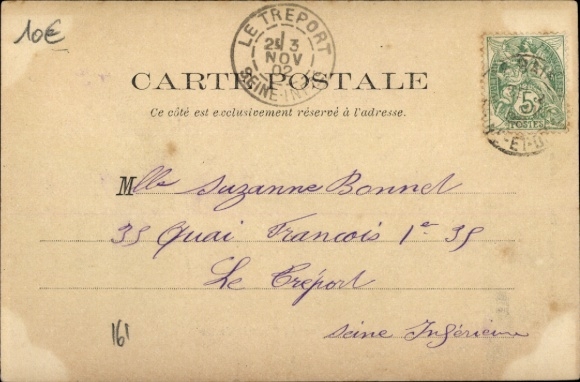 10€
LE TREPORT
2E 3
NOV
02
SEINE-INFRE
CARTE POSTALE
Ce côté est exclusivement réservé à l'adresse.
5
POSTES
Mlle Suzanne Bonnet
35 Quai Francois 1er 35
Le Tréport
Seine Inférieure
161